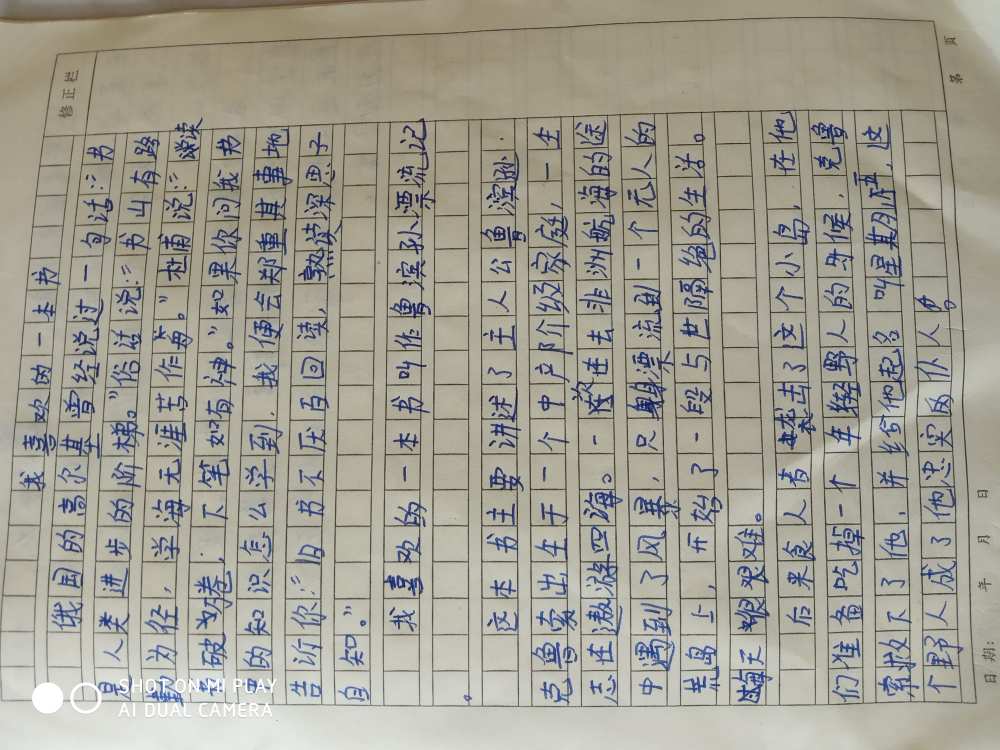 我喜欢的一本书
俄国的高尔基曾经说过一句话:“书
是人类进步的阶梯。”俗话说:“书山有路
勤为径,学海无涯苦作舟。”杜甫说:“读
书破万卷,下笔如有神。”如果你问我书
的知识怎么学到,我便会郑重其事地
告诉你:“旧书不厌百回读,熟读深思子
自知。”
我喜欢的一本书叫作鲁滨孙漂流记
。
这本书主要讲述了主人公鲁滨孙·
克鲁索出生于一个中产阶级家庭,一生
志在遨游四海。一次在去非洲航海的途
中遇到了风暴,只身漂流到一个无人的
荒岛上,开始了一段与世隔绝的生活。
艰难。
后来食人者袭击了这个小岛,在他
们准备吃掉一个年轻野人的时候,克鲁
索救下了他,并给他起名叫星期五,这
个野人成了他忠实的仆人。
修正栏
第 页
日期: 年 月 日
SHOT ON MI PLAY
AI DUAL CAMERA